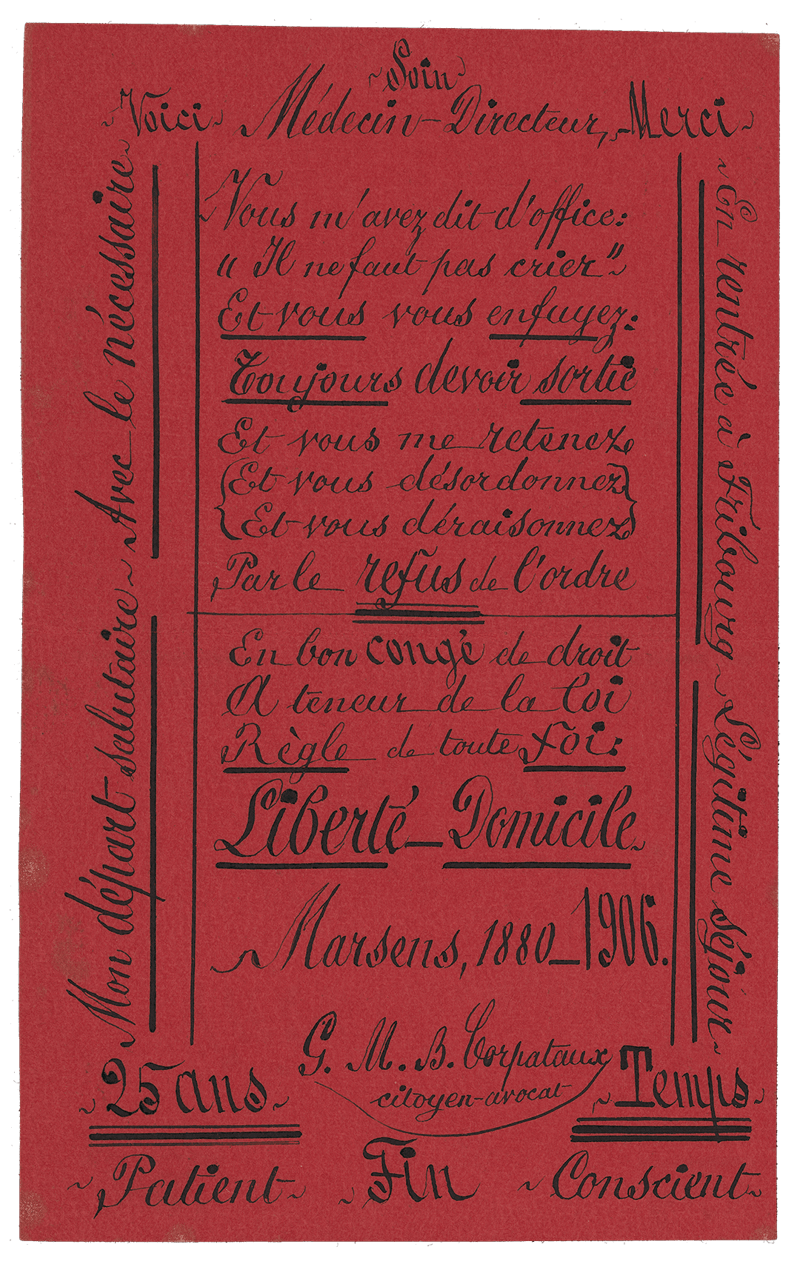 Soin
Voici Médecin-Directeur, Merci
Mon départ salutaire Avec le nécessaire
Vous m'avez dit d'office:
"Il ne faut pas crier"
Et vous vous enfuyez:
Toujours devoir sortie
Et vous me retenez
(Et vous désordonnez)
(Et vous déraisonnez)
Par le refus de l'ordre
En bon congé de droit
A teneur de la Loi
Règle de toute Foi:
Liberté-Domicile
Marsens, 1880-1906.
En rentrée à Fribourg Légitime séjour
G. M. B. Corpataux
citoyen-avocat
25 ans Temps
Patient Fin Conscient